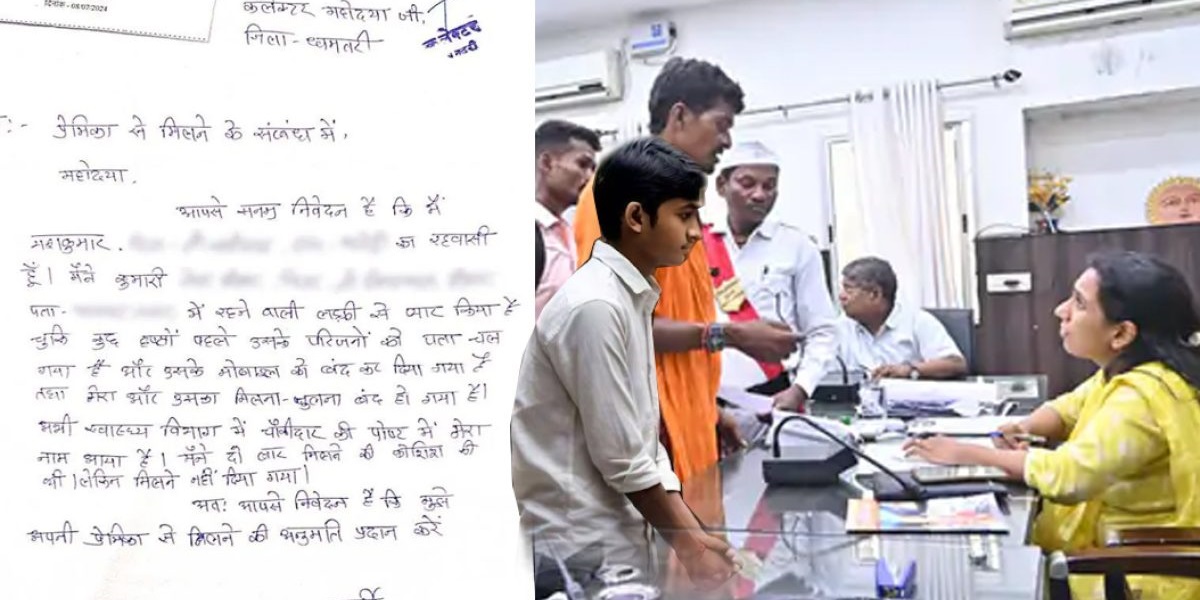 दिनांक - 08/07/2024
कलेक्टर महोदया जी,
जिला - धमतरी
:- प्रेमिका से मिलने के संबंध में,
महोदया,
आपसे सनम्र निवेदन है कि मैं
का रहवासी
हूँ। मैंने कुमारी
पता - में रहने वाली लड़की से प्यार किया है
चुकि कुछ हफ्तों पहले उसके परिजनों को पता चल
गया है और उसके मोबाइल को बंद कर दिया गया है
तथा मेरा और उसका मिलना-जुलना बंद हो गया है।
अभी स्वास्थ्य विभाग में चौकीदार की पोस्ट में मेरा
नाम आया है। मैंने दो बार मिलने की कोशिश की
थी। लेकिन मिलने नहीं दिया गया।
अतः आपसे निवेदन है कि मुझे
अपनी प्रेमिका से मिलने की अनुमति प्रदान करें